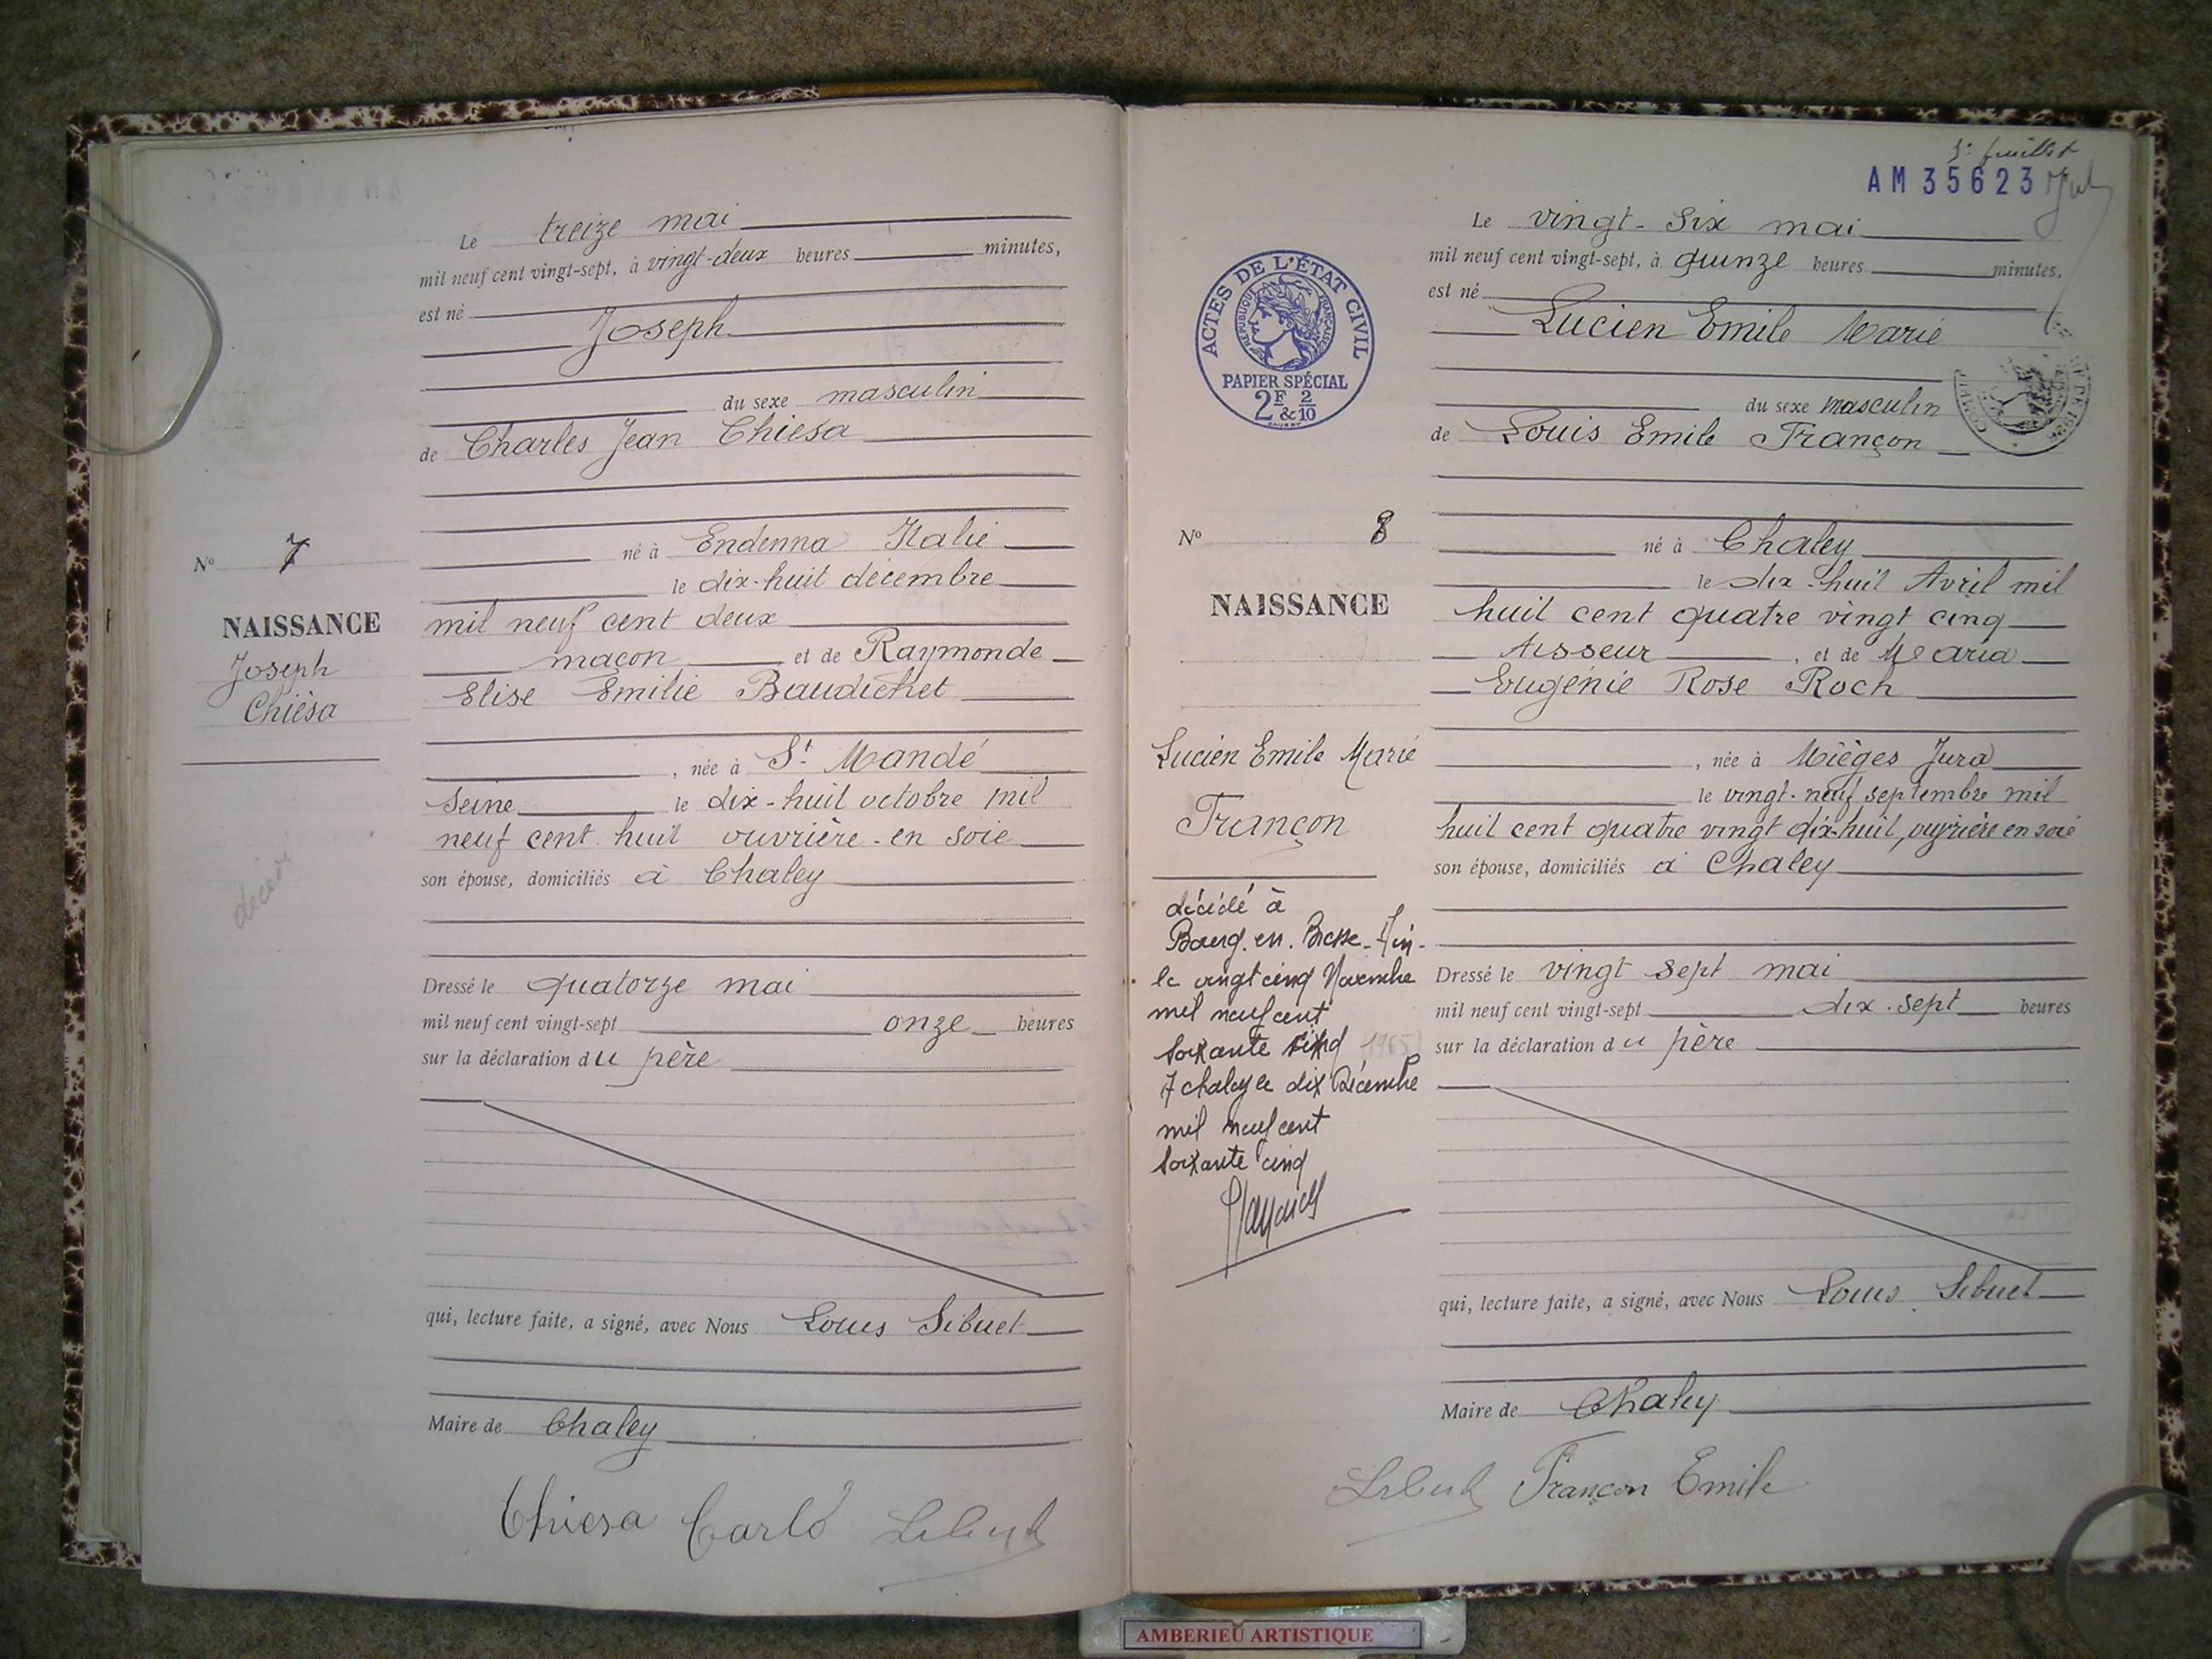 Le treize mai
mil neuf cent vingt-sept, à vingt-deux heures minutes,
est né
Joseph
du sexe masculin
de Charles Jean Chiesa
né à Endenna Italie
le dix-huit décembre
mil neuf cent deux
maçon et de Raymonde
Elise Emilie Baudichet
, née à St Mandé
Seine le dix-huit octobre mil
neuf cent huit ouvrière en soie
son épouse, domiciliés à Chaley
Dressé le quatorze mai
mil neuf cent vingt-sept onze heures
sur la déclaration du père
qui, lecture faite, a signé, avec Nous Louis Sibuet
Maire de Chaley
Chiesa Carlo
No 7
NAISSANCE
Joseph
Chièsa
décédé
feuillet
AM 35623
ACTES DE L'ÉTAT CIVIL
RÉPUBLIQUE FRANÇAISE
PAPIER SPÉCIAL
2F & 2/10
No 8
NAISSANCE
Lucien Emile Marie
Françon
décédé à
Bourg. en. Bresse - Ain -
le vingt cinq Novembre
mil neuf cent
soixante cinq
chaley le dix Décembre
mil neuf cent
soixante cinq
Le vingt-six mai
mil neuf cent vingt-sept, à quinze heures minutes,
est né
Lucien Emile Marie
du sexe masculin
de Louis Emile Françon
né à Chaley
le dix-huit Avril mil
huit cent quatre vingt cinq
tisseur , et de Maria
Eugénie Rose Roch
, née à Mièges Jura
le vingt-neuf septembre mil
huit cent quatre vingt dix-huit, ouvrière en soie
son épouse, domiciliés à Chaley
Dressé le vingt sept mai
mil neuf cent vingt-sept dix-sept heures
sur la déclaration du père
qui, lecture faite, a signé, avec Nous Louis Sibuet
Maire de Chaley
Françon Emile
AMBERIEU ARTISTIQUE